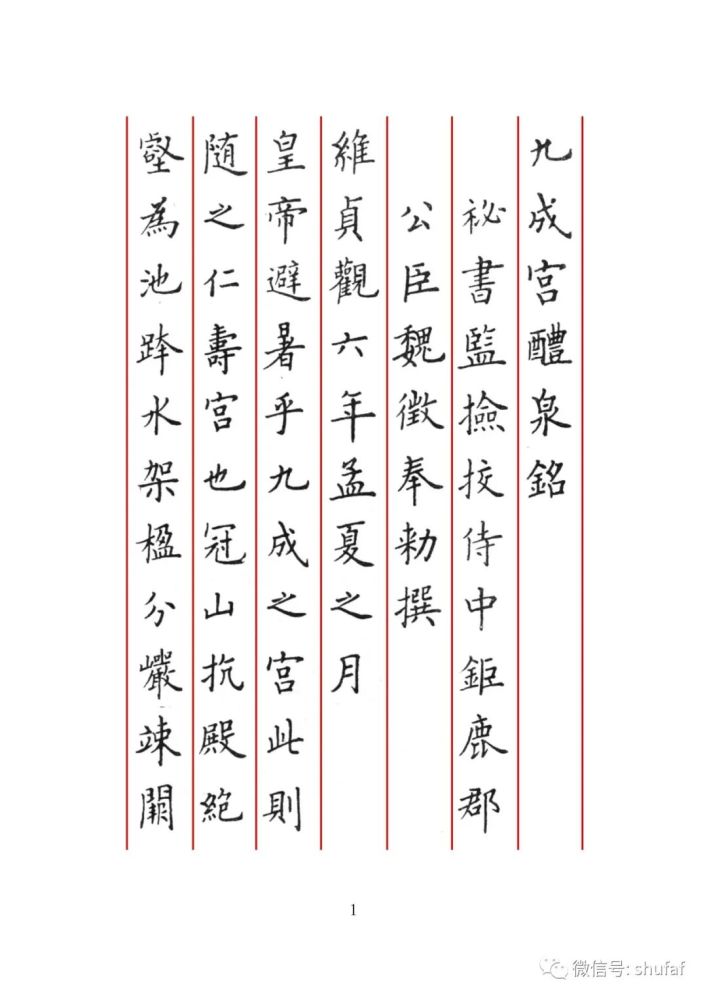 九成宫醴泉銘
祕書監撿挍侍中鉅鹿郡
公臣魏徵奉勑撰
維貞觀六年孟夏之月
皇帝避暑乎九成之宫此則
随之仁壽宫也冠山抗殿絶
壑為池跨水架楹分巖竦闕
1
微信号: shufaf